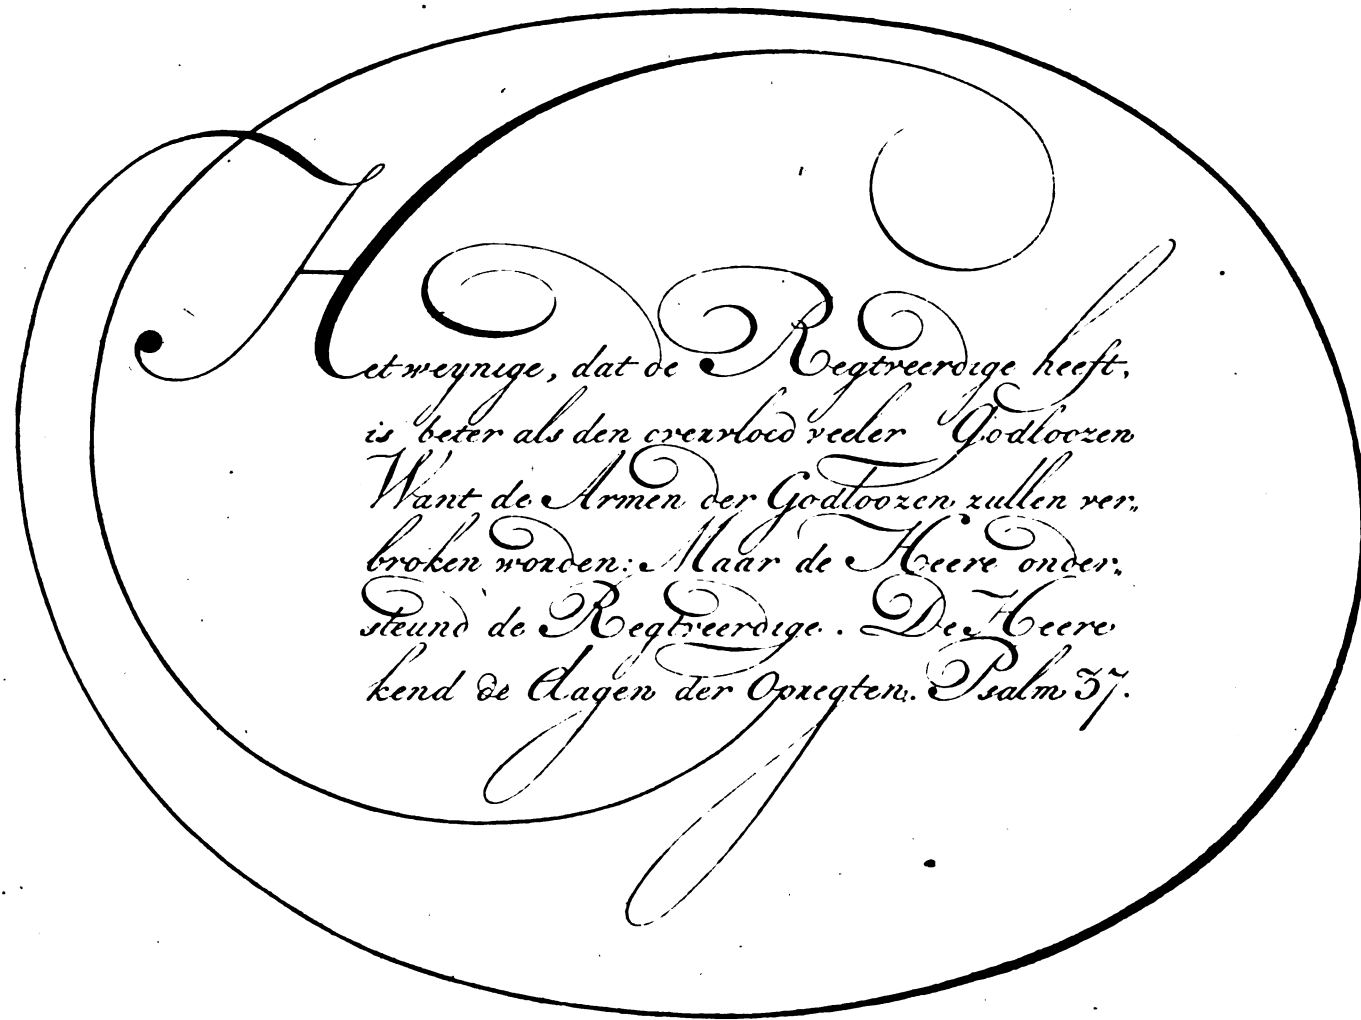 Het weynige, dat de Regtveerdige heeft,
is beter als den overvloed veeler Godloozen
Want de Armen der Godloozen zullen ver„
broken worden: Maar de Heere onder„
steund de Regtveerdige. De Heere
kend de dagen der Opregten. Psalm 37.